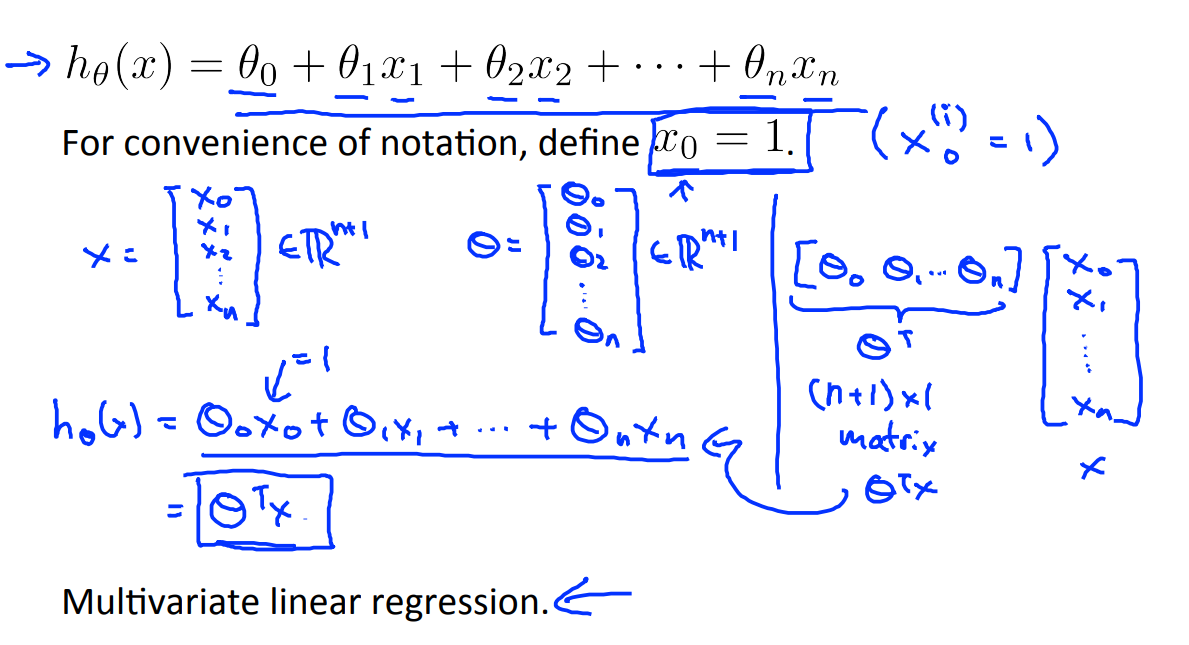 → hθ(x) = θ0 + θ1x1 + θ2x2 + ··· + θnxn
For convenience of notation, define x0 = 1. (x0^(i) = 1)
x = [x0 x1 x2 ⋮ xn] ∈ ℝ^n+1
θ = [θ0 θ1 θ2 ⋮ θn] ∈ ℝ^n+1
hθ(x) = θ0x0 + θ1x1 + ··· + θnxn
= 1
= θ^T x
[θ0 θ1 ··· θn] [x0 x1 ⋮ xn]
θ^T
(n+1) × 1
matrix
x
θ^T x
Multivariate linear regression. ←